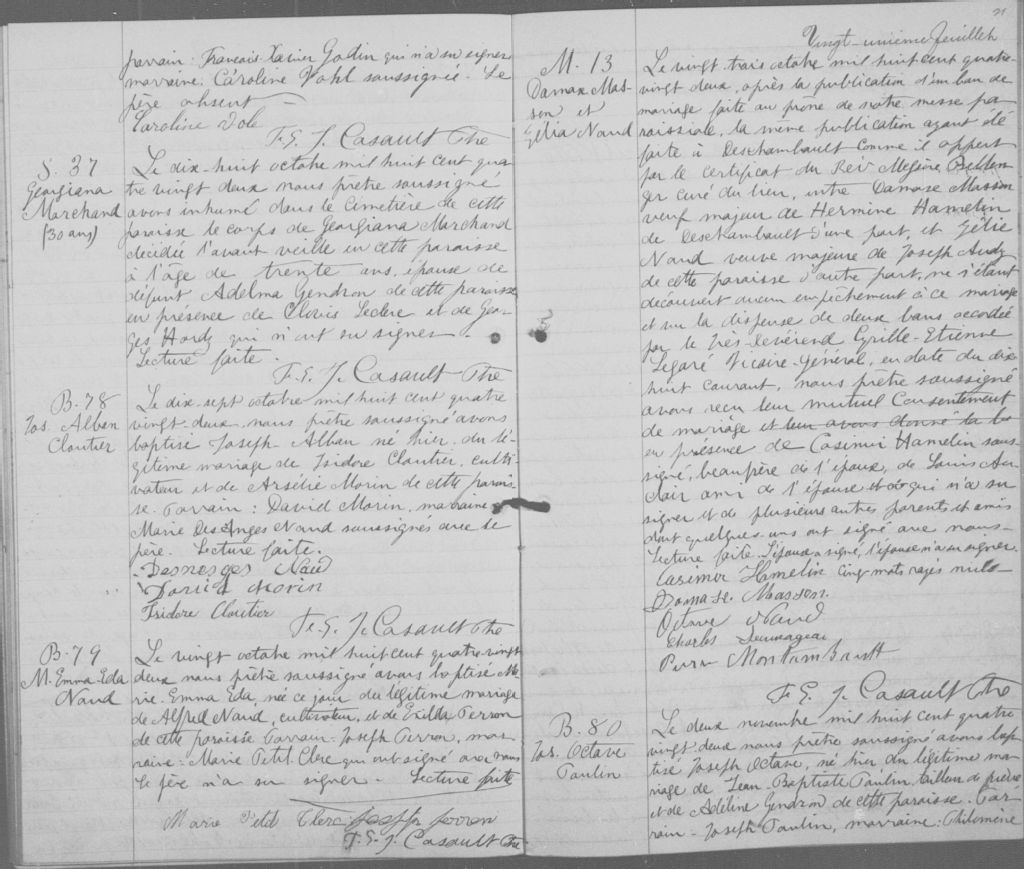 parrain: Francois Xavier Godin qui n'a su signer
marraine: Caroline Vohl soussignée. Le
père absent
Caroline Vole
F. E. J. Casault Ptre
S. 37
Georgiana
Marchand
(30 ans)
Le dix-huit octobre mil huit cent qua
tre vingt deux nous prêtre soussigné
avons inhumé dans le cimetière de cette
paroisse le corps de Georgiana Marchand
décédée l'avant veille en cette paroisse
à l'âge de trente ans, épouse de
défunt Adelma Gendron de cette paroisse
en présence de Clovis Leclerc et de Geor
ges Hardy qui n'ont su signer.
Lecture faite.
F. E. J. Casault Ptre
B. 78
Jos. Alban
Cloutier
Le dix-sept octobre mil huit cent quatre
vingt-deux, nous prêtre soussigné avons
baptisé Joseph Alban né hier du lé-
gitime mariage de Isidore Cloutier, culti
vateur et de Arsélie Morin de cette parois
se. Parrain: David Morin, marraine
Marie Des Anges Naud soussignés avec le
père. Lecture faite.
Desnesges Naud
David Morin
Isidore Cloutier
F. E. J. Casault Ptre
B. 79
M. Emma Eda
Naud
Le vingt octobre mil huit cent quatre-vingt
deux nous prêtre soussigné avons baptisé Ma
rie-Emma Eda, née ce jour du légitime mariage
de Alfred Naud, cultivateur, et de Exilda Perron
de cette paroisse Parrain Joseph Perron, mar
raine: Marie Petit Clerc qui ont signé avec nous
le père n'a su signer. Lecture faite
Marie Petit Clerc Joseph Perron
F. E. J. Casault Ptre
21
Vingt-unième feuillet
M. 13
Damase Mas-
son et
Zélia Naud
Le vingt trois octobre mil huit cent quatre-
vingt deux, après la publication d'un ban de
mariage faite au prone de notre messe pa
roissiale, la même publication ayant été
faite à Deschambault comme il appert
par le certificat du Rév Messire Bellen-
ger curé du lieu, entre Damase Masson
veuf majeur de Hermine Hamelin
de Deschambault d'une part, et Zélie
Naud veuve majeure de Joseph Audy
de cette paroisse d'autre part, ne s'étant
découvert aucun empêchement à ce mariage
et vu la dispense de deux bans accordée
par le Très-Révérend Cyrille-Etienne
Legaré Vicaire-Général, en date du dix
huit courant, nous prêtre soussigné
avons reçu leur mutuel consentement
de mariage et leur avons donné la bé
en présence de Casimir Hamelin sous-
signé, beaupère de l'époux, de Louis Au
clair ami de l'épouse qui n'a su
signer et de plusieurs autres parents et amis
dont quelques-uns ont signé avec nous-
Lecture faite. L'époux a signé, l'épouse n'a su signer.
Casimir Hamelin Cinq mots rayés nuls
Damase Masson.
Octave Naud
Charles
Pierre Montambault
F. E. J. Casault Ptre
B. 80
Jos. Octave
Paulin
Le deux novembre mil huit cent quatre
vingt-deux nous prêtre soussigné avons bap
tisé Joseph Octave, né hier du légitime ma
riage de Jean-Baptiste Paulin tailleur de pierre
et de Adeline Gendron de cette paroisse. Par
rain - Joseph Paulin, marraine: Philomène